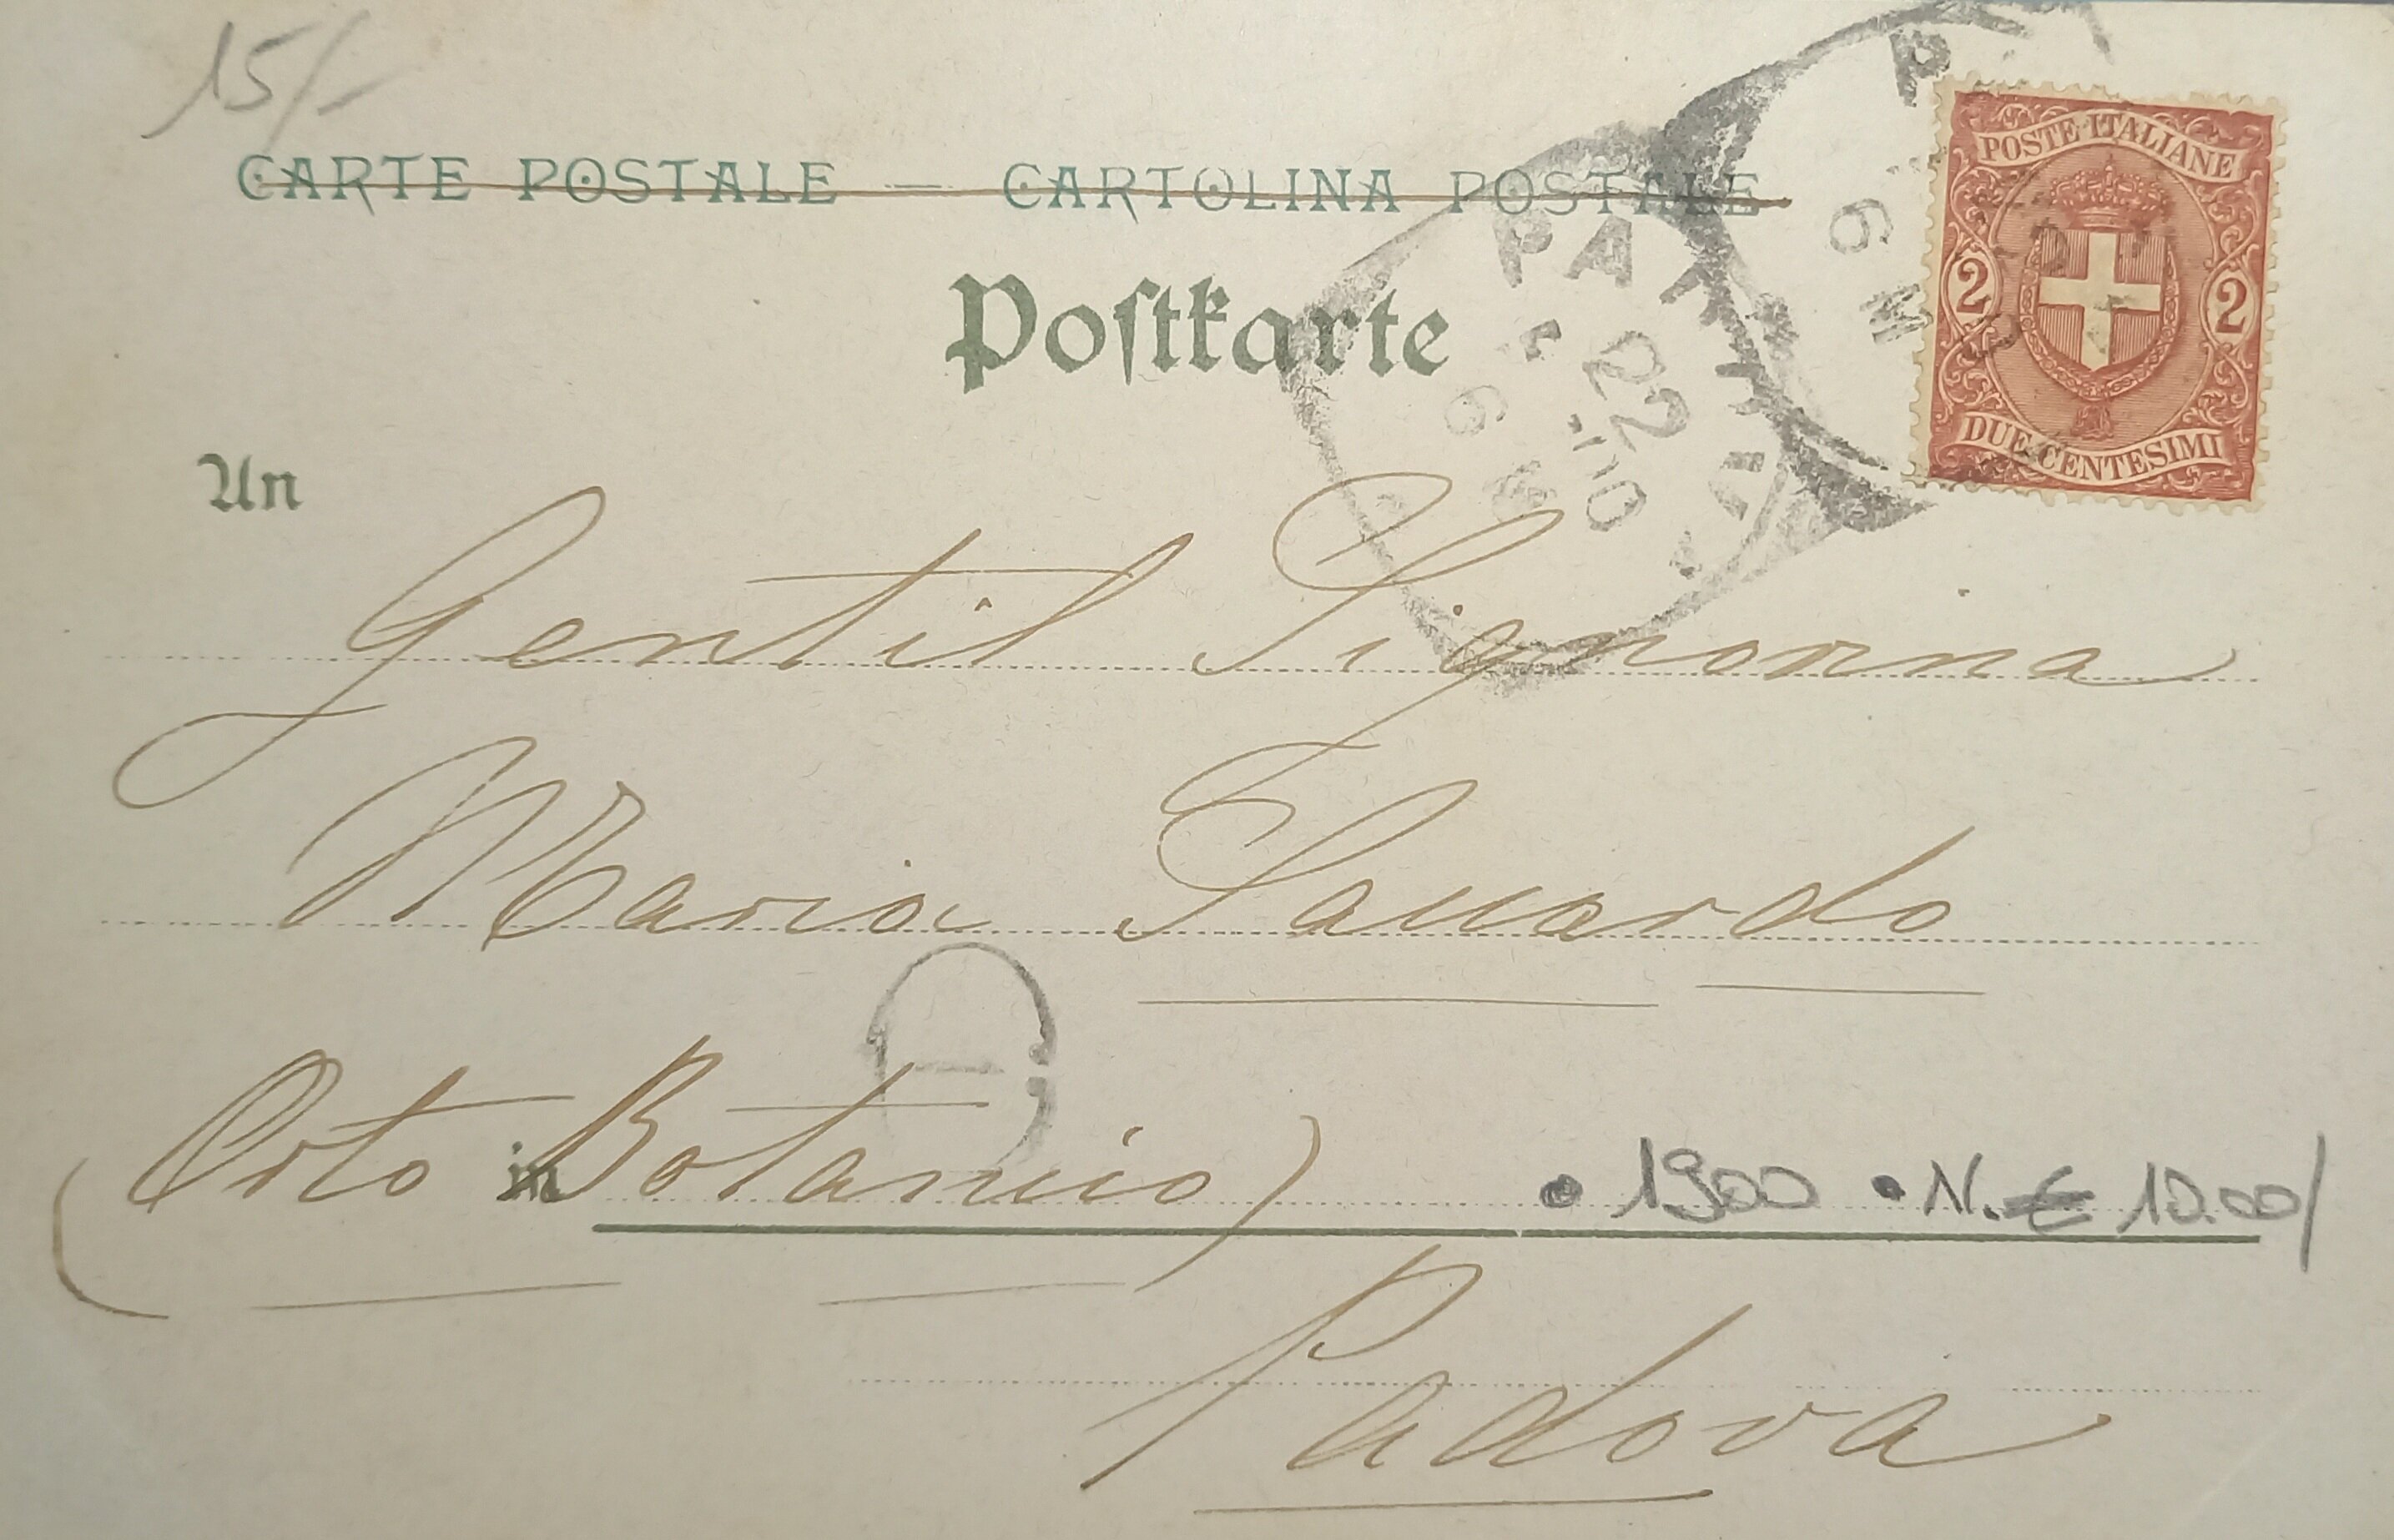 15/-
CARTE POSTALE — CARTOLINA POSTALE
Postkarte
POSTE ITALIANE
2 2
DUE CENTESIMI
22
6 M
An
Gentil Signorina
Maria
(Orto Botanico)
in
• 1900 • N. € 10.00/
Padova